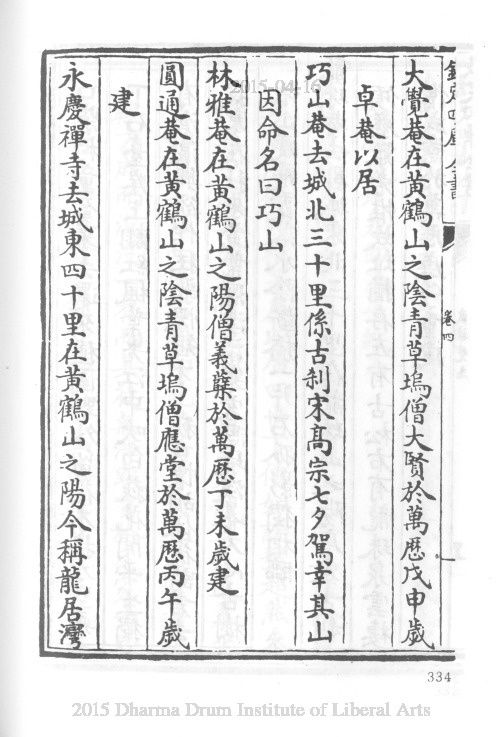 欽定四庫全書
卷四
大覺菴在黃鶴山之陰青草塢僧大賢於萬厯戊申歲
卓菴以居
巧山菴去城北三十里係古刹宋髙宗七夕駕幸其山
因命名曰巧山
林雅菴在黃鶴山之陽僧義蘂於萬厯丁未歲建
圓通菴在黃鶴山之陰青草塢僧應堂於萬厯丙午歲
建
永慶禪寺去城東四十里在黃鶴山之陽今稱龍居灣
334
2015-04-16
2015 Dharma Drum Institute of Liberal Arts